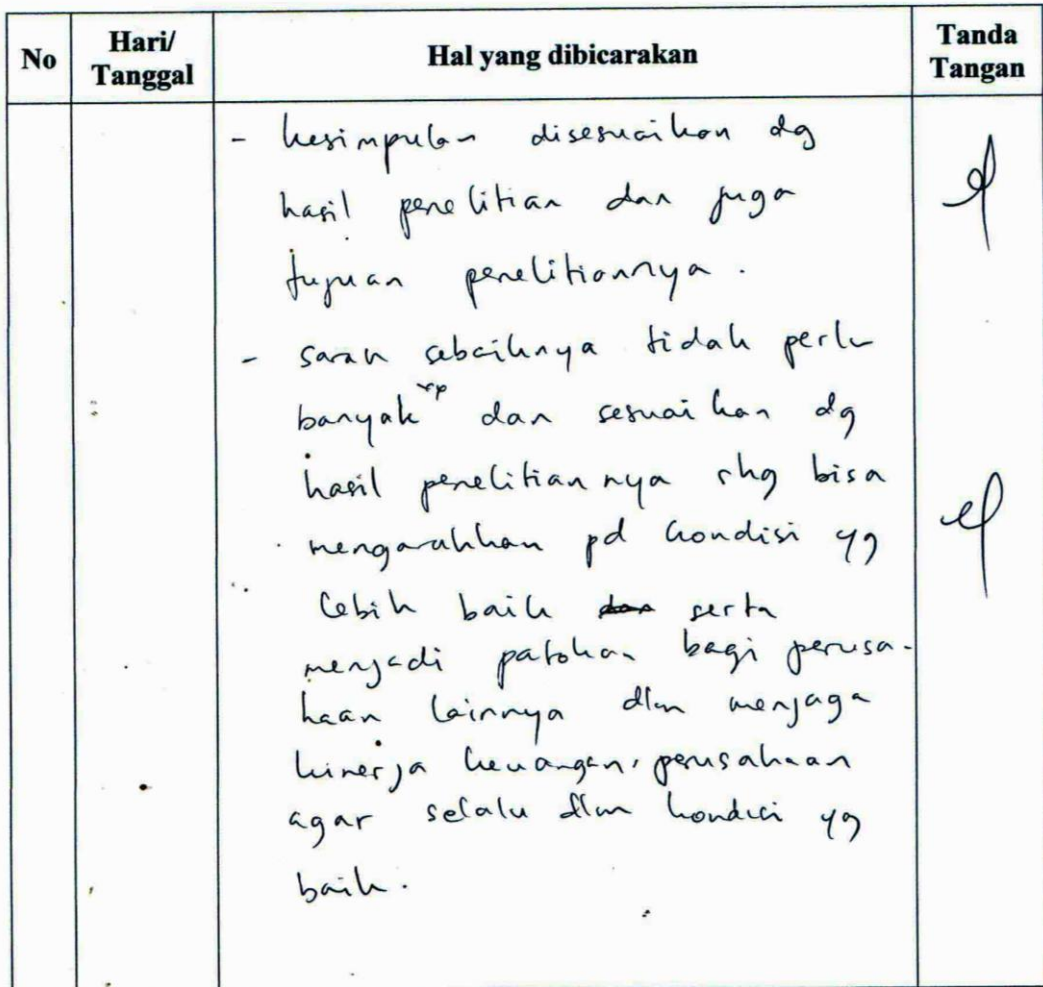 No
Hari/
Tanggal
Hal yang dibicarakan
Tanda
Tangan
- kesimpulan disesuaikan dg
hasil penelitian dan juga
tujuan penelitiannya.
- saran sebaiknya tidak perlu
banyak dan sesuaikan dg
hasil penelitiannya shg bisa
mengarahkan pd kondisi yg
lebih baik serta
menjadi patokan bagi perusa-
haan lainnya dlm menjaga
kinerja keuangan perusahaan
agar selalu dlm kondisi yg
baik.